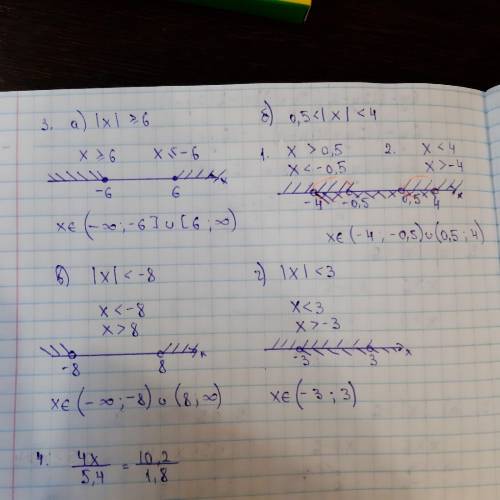 3. а) |x| ≥ 6
x ≥ 6 x ≤ -6
-6 6 x
x∈(-∞; -6] ∪ [6; ∞)
б) 0,5 < |x| < 4
1. x > 0,5 2. x < 4
x < -0,5 x > -4
-4 -0,5 0,5 4 x
x∈(-4; -0,5) ∪ (0,5; 4)
в) |x| < -8
x < -8
x > 8
-8 8 x
x∈(-∞; -8) ∪ (8; ∞)
г) |x| < 3
x < 3
x > -3
-3 3 x
x∈(-3; 3)
4. 4x/5,4 = 10,2/1,8